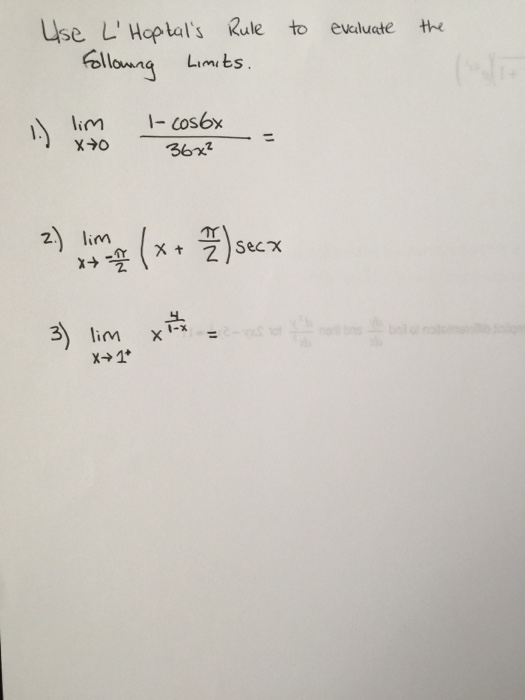 Use L'Hopital's Rule to evaluate the
Following Limits.
1.) lim x→0 (1 - cos6x)/(36x²) =
2.) lim x→ -π/2 (x + π/2) secx
3) lim x→1⁺ x^(4/(1-x)) =